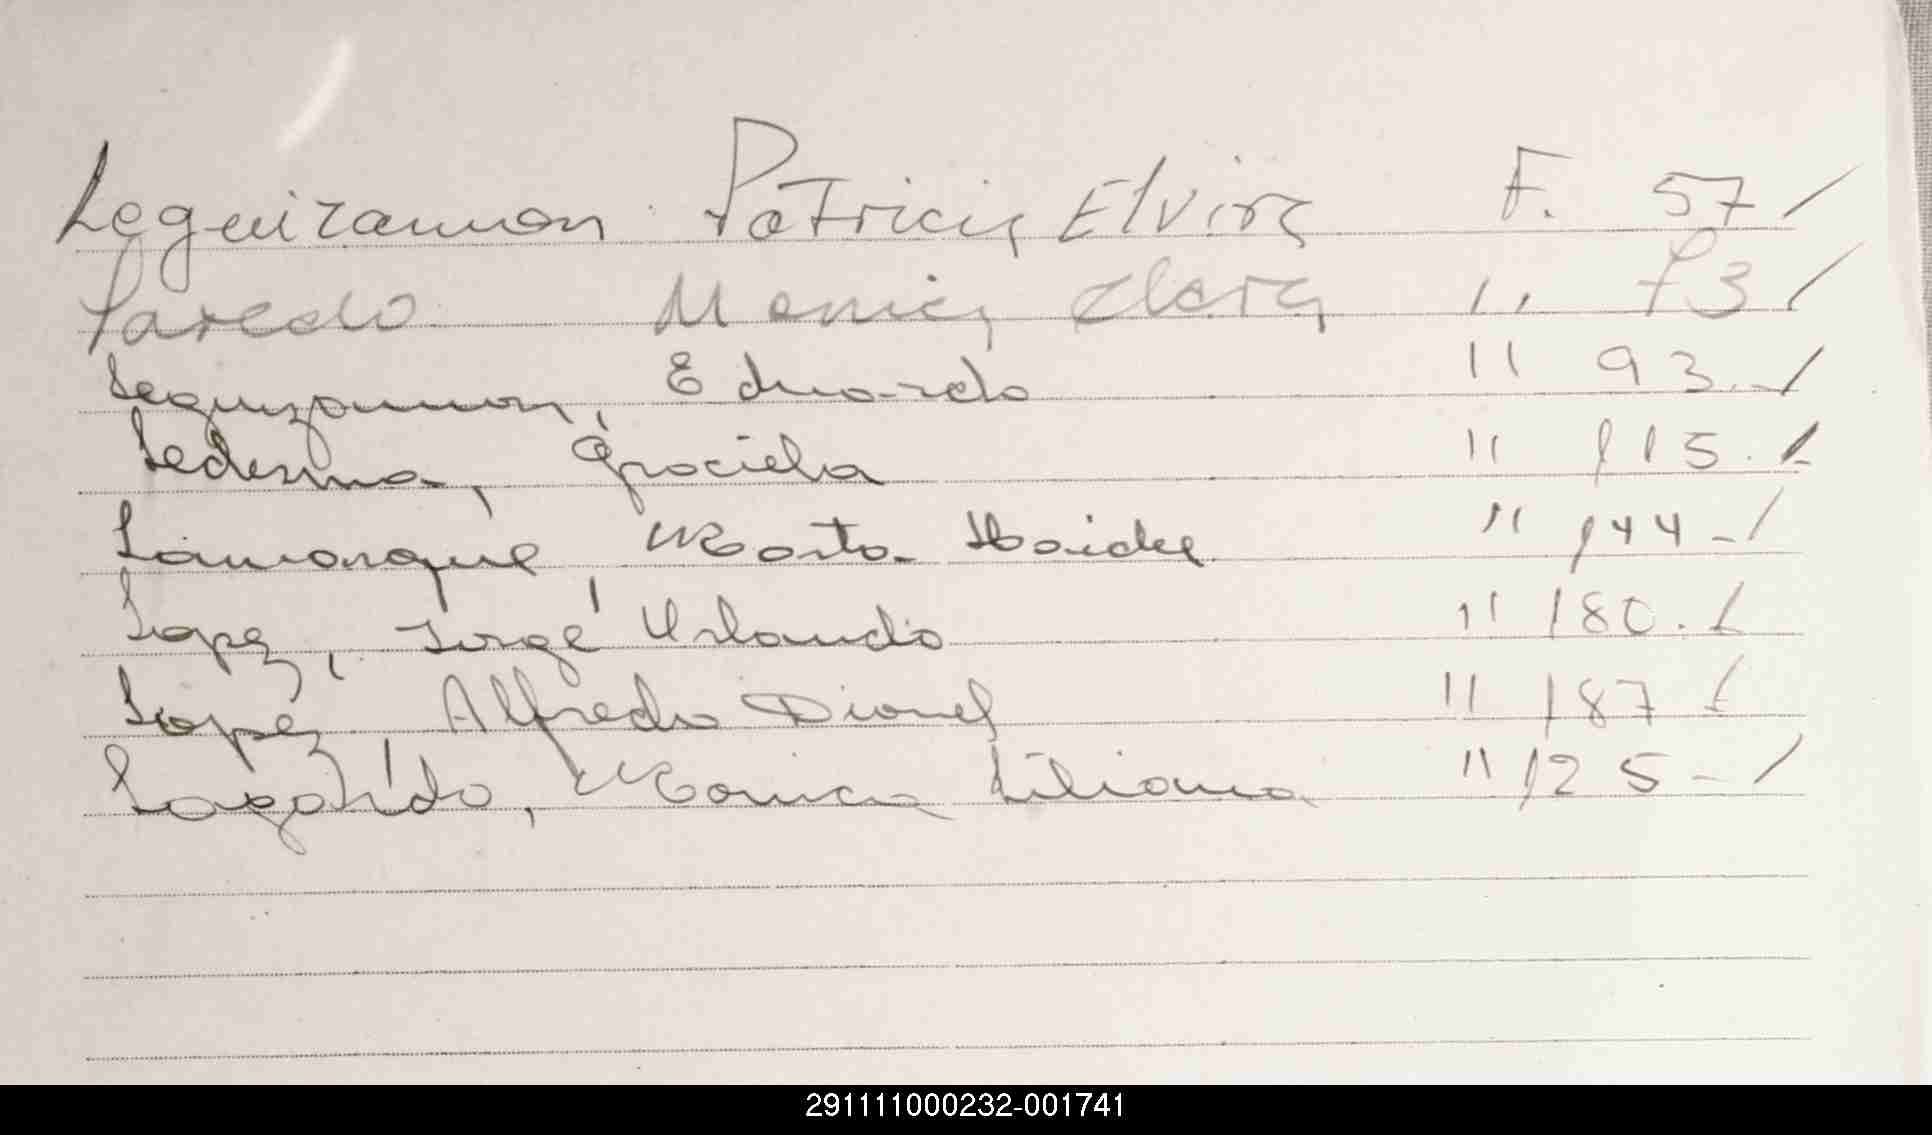 Leguizamon Patricia Elvira F. 57 /
Laredo Monica Clara " 73 /
Leguizamon, Eduardo " 93. /
Ledesma, Graciela " 115. /
Lamarque, Marta Haidee " 144 - /
Lopez, Jorge Orlando " 180. /
Lopez, Alfredo Dionel " 187 /
Monica Liliana " 125 - /
291111000232-001741